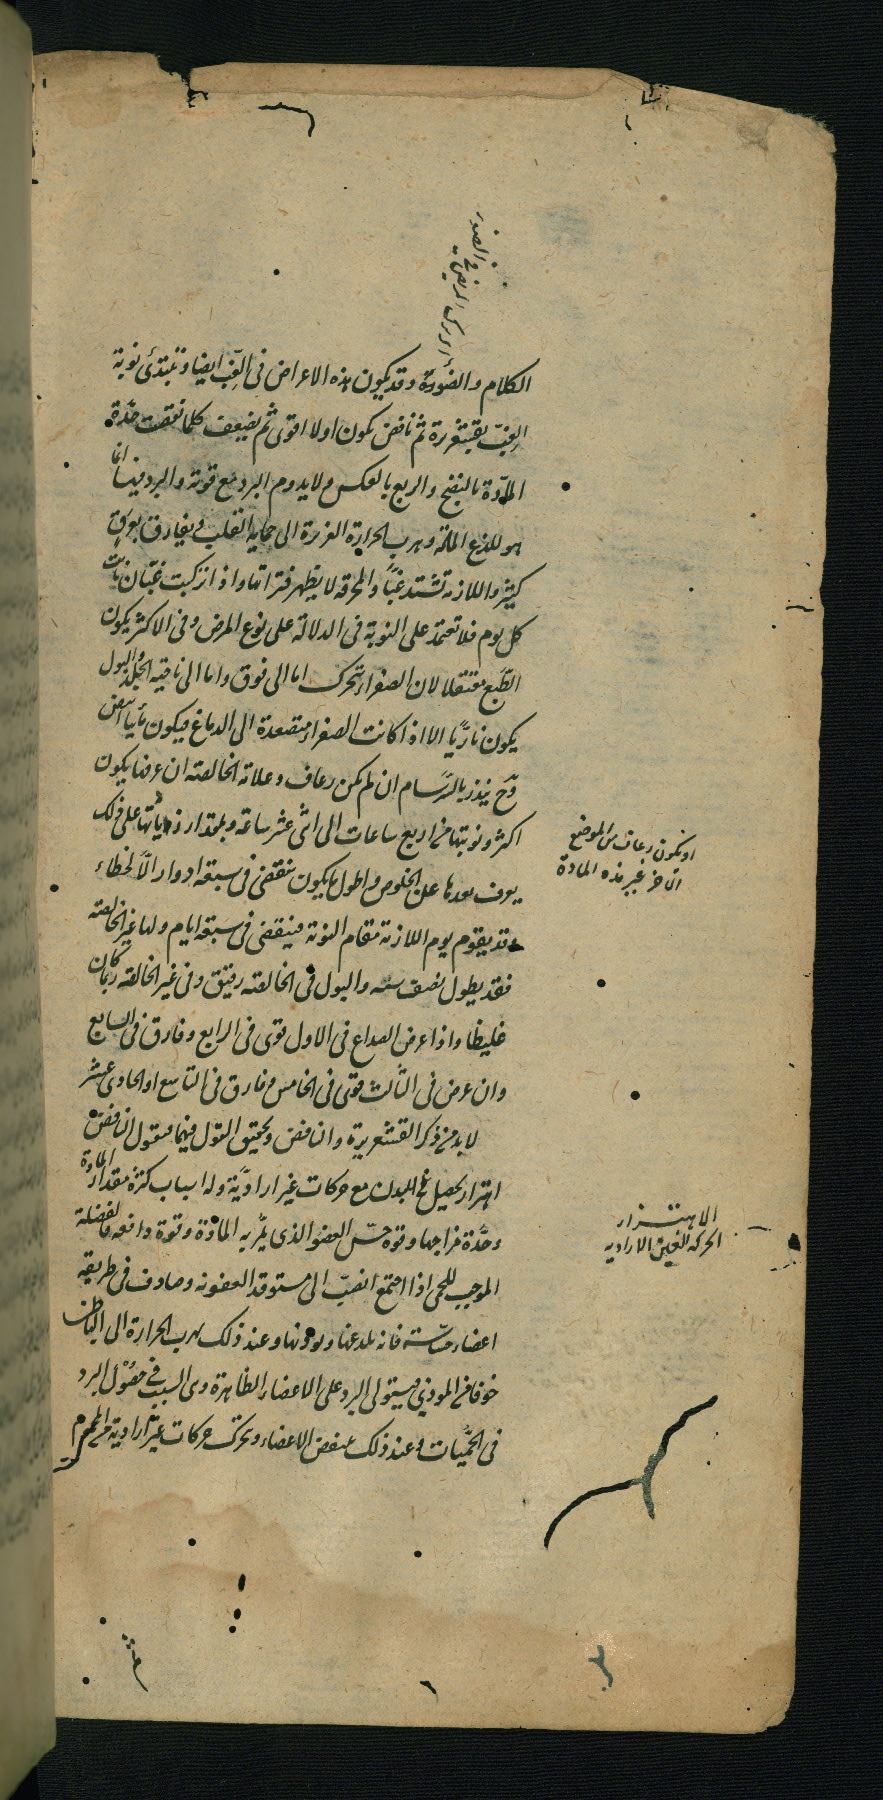 الكلام والضورة وقد يكون هذه الاعراض فى الغب ايضا وتبتدئ نوبة
الغب بقشعريرة ثم نافض يكون اولا اقوى ثم يضعف كلما نقصت حدّة
المادّة بالنضج والربع بالعكس ولا يدوم البرد مع قوته والبرد فيها انما
هو للذع المادة وهرب الحرارة الغريزة الى حماية القلب ويفارق بعرق
كثير واللازمة تشتد غبّا والمحرقة لا يظهر فتراتها واذا تركبت غبّان نابت
كل يوم فلا تعتمد على النوبة فى الدلالة على نوع المرض وفى الاكثر يكون
الطبع معتقلا لان الصفراء تتحرك اما الى فوق واما الى ناحية الجلد والبول
يكون ناريّا الا اذا كانت الصفراء متصعدة الى الدماغ فيكون مائيا ابيض
وح ينذر بالسرسام ان لم يكن رعاف وعلامة الخالصة ان عرضنا يكون
اكثر ونوبتها من اربع ساعات الى اثنى عشر ساعة وبمقدار زياداتها على ذلك
يعرف بعدها عن الخلوص واطول ما يكون ينقضى فى سبعة ادوار الّا لخطاء
وقد يقوم يوم اللازمة مقام النوبة فينقضى فى سبعة ايام ولها غير الخالصة
فقد يطول نصف سنه والبول فى الخالصة رقيق وفى غير الخالصة ربما كان
غليظا واذا عرض الصداع فى الاول قوى فى الرابع وفارق فى السابع
وان عرض فى الثالث قوى فى الخامس وفارق فى التاسع او الحادى عشر
لا بد من ذكر القشعريرة والنافض وتحقيق القول فيهما فنقول النافض
اهتزاز يحصل فى البدن مع حركات غير ارادية وله اسباب كثرة مقدار المادة
وحدّة مزاجها وقوة حسّ العضو الذى يمرّ به المادة وقوة دافعه فالفضلة
الموجب للحمى اذا اجتمع انصبّ الى مستوقد العفونة وصادف فى طريقه
اعضاء حسّاسة فانه يلدغها ويوذيها وعند ذلك يهرب الحرارة الى الباطن
خوفا من الموذي فيستولى البرد على الاعضاء الظاهرة وهى السبب في حصول البرد
فى الحمّيات وعند ذلك ينفض الاعضاء وتحرك حركات غير ارادية
او يكون رعاف من الموضع
الآخر غير هذه المادة
الاهتزاز
الحركة الغير الارادية